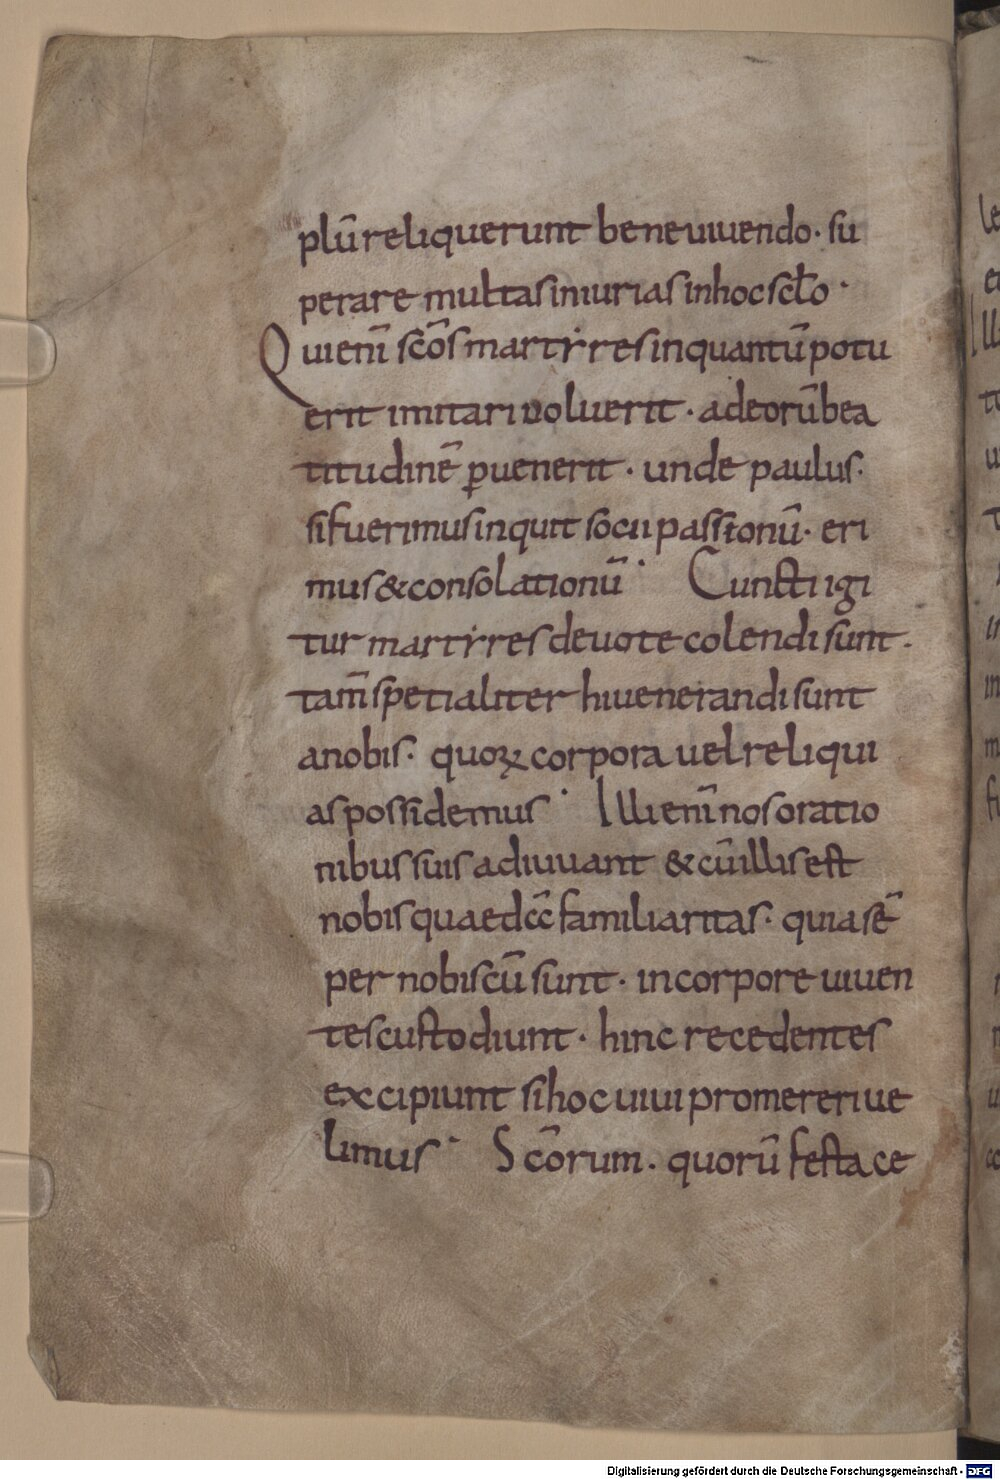 plū reliquerunt bene uiuendo · su
perare multas iniurias in hoc sclo ·
Qui enī scōs martyres in quantū potu
erit imitari uoluerit · ad eorū bea
titudinē ꝑuenerit · unde paulus ·
si fuerimus inquit socii passionū · eri
mus & consolationū · Cuncti igi
tur martyres deuote colendi sunt ·
tam̄ spetialiter hi uenerandi sunt
a nobis · quoꝝ corpora uel reliqui
as possidemus · Illi enī nos oratio
nibus suis adiuuant & cū illis est
nobis quaedā familiaritas · quia sē
per nobiscū sunt · in corpore uiuen
tes custodiunt · hinc recedentes
excipiunt si hoc uiui promereri ue
limus · Scōrum · quorū festa ce
Digitalisierung gefördert durch die Deutsche Forschungsgemeinschaft - DFG